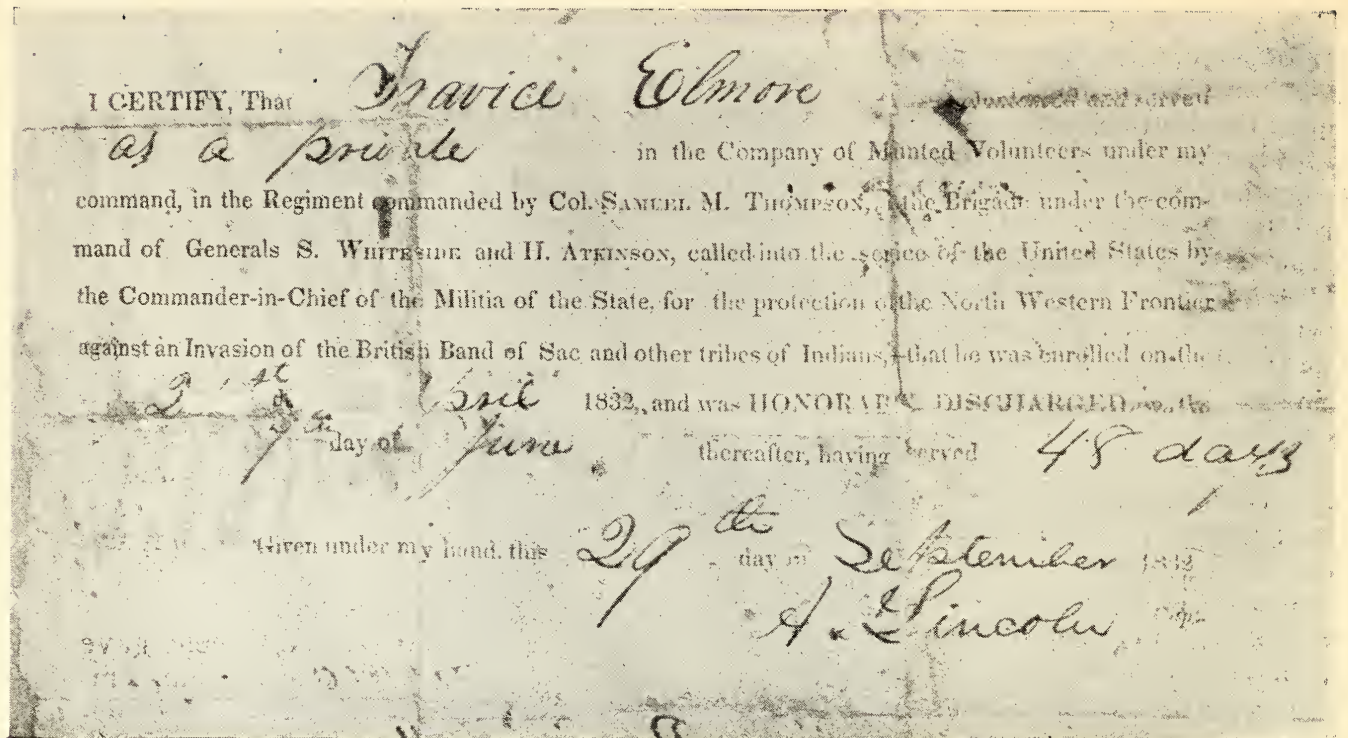 I CERTIFY, That Travice Elmore volunteered and served
as a private in the Company of Mounted Volunteers under my
command, in the Regiment commanded by Col. SAMUEL M. THOMPSON, the Brigade under the com-
mand of Generals S. WHITESIDE and H. ATKINSON, called into the service of the United States by
the Commander-in-Chief of the Militia of the State, for the protection of the North Western Frontier
against an Invasion of the British Band of Sac and other tribes of Indians,—that he was enrolled on the
21st April 1832, and was HONORABLY DISCHARGED on the
7th day of June thereafter, having served 48 days
Given under my hand, this 29th day of September 1832
A. Lincoln Cap.